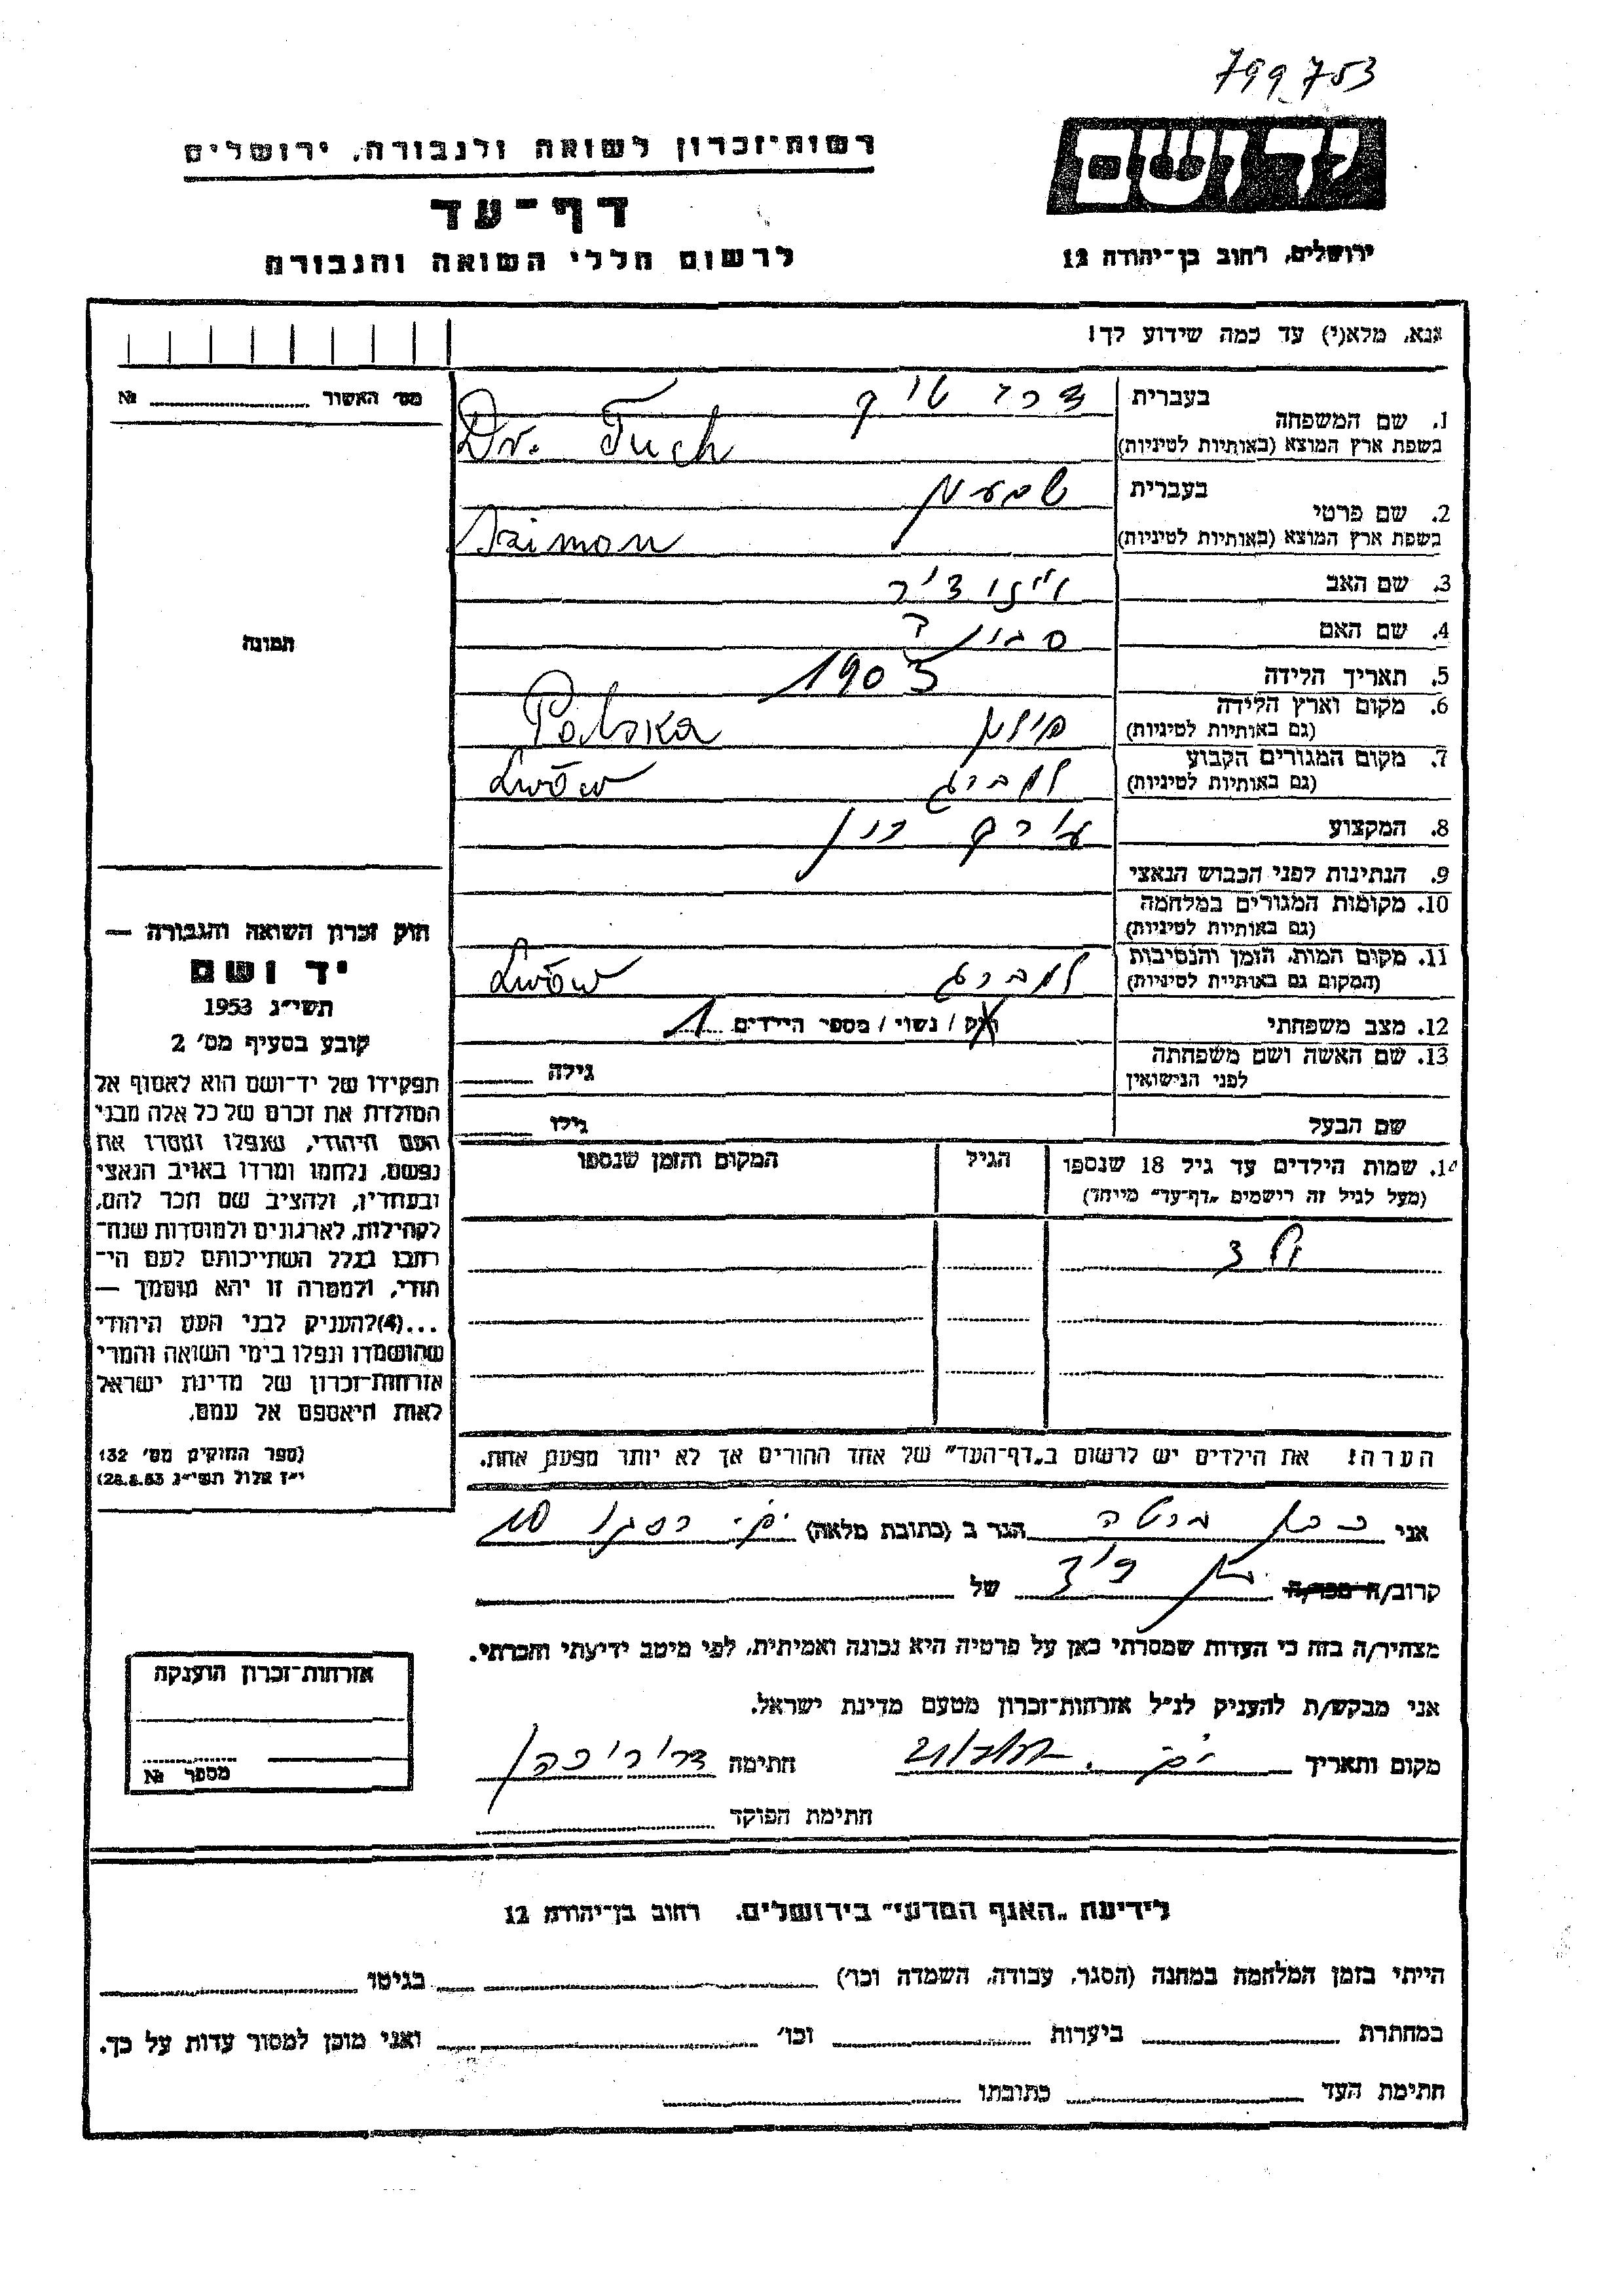 799753
יד ושם
ירושלים, רחוב בן־יהודה 12
רשות־זכרון לשואה ולגבורה, ירושלים
דף־עד
לרשום חללי השואה והגבורה
נא, מלא(י) עד כמה שידוע לך!
מס' האשור № 
1. שם המשפחה
בעברית
בשפת ארץ המוצא (באותיות לטיניות) Dr. Tuch
2. שם פרטי
בעברית שמעון
בשפת ארץ המוצא (באותיות לטיניות) Szimon
3. שם האב
4. שם האם
5. תאריך הלידה 1903
6. מקום וארץ הלידה
(גם באותיות לטיניות) פולין Polska
7. מקום המגורים הקבוע
(גם באותיות לטיניות) למברג Lwów
8. המקצוע עורך דין
9. הנתינות לפני הכבוש הנאצי
10. מקומות המגורים במלחמה
(גם באותיות לטיניות)
11. מקום המות, הזמן והנסיבות
(המקום גם באותיות לטיניות) למברג Lwów
12. מצב משפחתי רווק / נשוי / מספר הילדים 1
13. שם האשה ושם משפחתה
לפני הנישואין גילה
שם הבעל גילו
14. שמות הילדים עד גיל 18 שנספו הגיל המקום והזמן שנספו
(מעל לגיל זה רישמים „דף־עד" מייחד)
ילד
הערה: את הילדים יש לרשום ב„דף־העד" של אחד ההורים אך לא יותר מפעם אחת.
תמונה
חוק זכרון השואה והגבורה —
יד ושם
תשי״ג 1953
קובע בסעיף מס' 2
תפקידו של יד־ושם הוא לאסוף אל
המולדת את זכרם של כל אלה מבני
העם היהודי, שנפלו ומסרו את
נפשם, נלחמו ומרדו באויב הנאצי
ובעוזריו, ולהציב שם וזכר להם,
לקהילות, לארגונים ולמוסדות שנח־
רבו בגלל השתייכותם לעם הי־
הודי, ולמטרה זו יהא מוסמך —
...(4)להעניק לבני העם היהודי
שהושמדו ונפלו בימי השואה והמרי
אזרחות־זכרון של מדינת ישראל
לאות היאספם אל עמם.
(ספר החוקים מס' 132
י״ז אלול תשי״ג 28.8.53)
אני הגר ב (כתובת מלאה)
קרוב/ה מכר/ה של
מצהיר/ה בזה כי העדות שמסרתי כאן על פרטיה היא נכונה ואמיתית, לפי מיטב ידיעתי והכרתי.
אני מבקש/ת להעניק לנ״ל אזרחות־זכרון מטעם מדינת ישראל.
מקום ותאריך חתימה
חתימת הפוקד
אזרחות־זכרון הוענקה
מספר №
לידיעת „האגף המדעי" בירושלים, רחוב בן־יהודה 12
הייתי בזמן המלחמה במחנה (הסגר, עבודה, השמדה וכו') בגיטו
במחתרת ביערות וכו' ואני מוכן למסור עדות על כך.
חתימת העד כתובתו